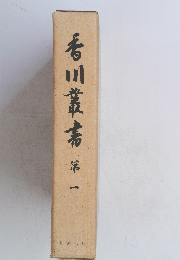 香川叢書 第一